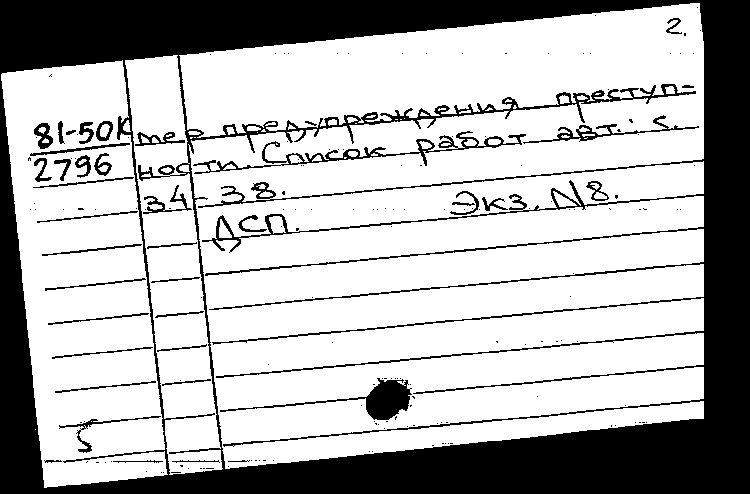 2.
81-50К мер предупреждения преступ=
2796 ности. Список работ авт.: с.
34-38.
ДСП. Экз. N8.
5